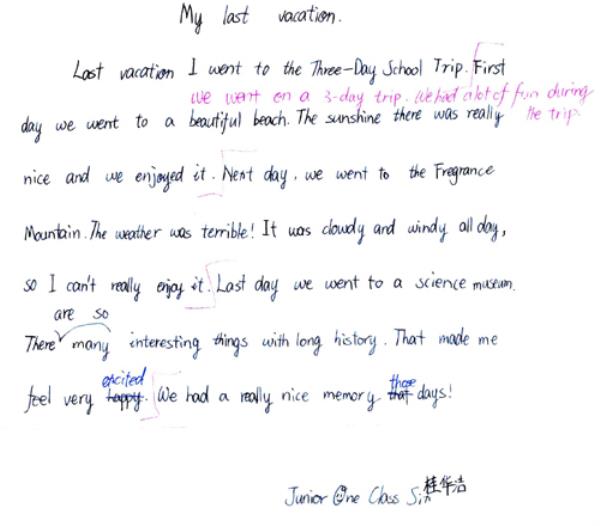 My last vacation.
Last vacation I went to the Three-Day School Trip. First
We went on a 3-day trip. We had a lot of fun during
the trip.
day we went to a beautiful beach. The sunshine there was really
nice and we enjoyed it. Next day, we went to the Fregrance
Mountain. The weather was terrible! It was cloudy and windy all day,
so I can't really enjoy it. Last day we went to a science museum.
are so
There many interesting things with long history. That made me
excited
feel very happy. We had a really nice memory that days!
those
Junior One Class Six 桂华洁